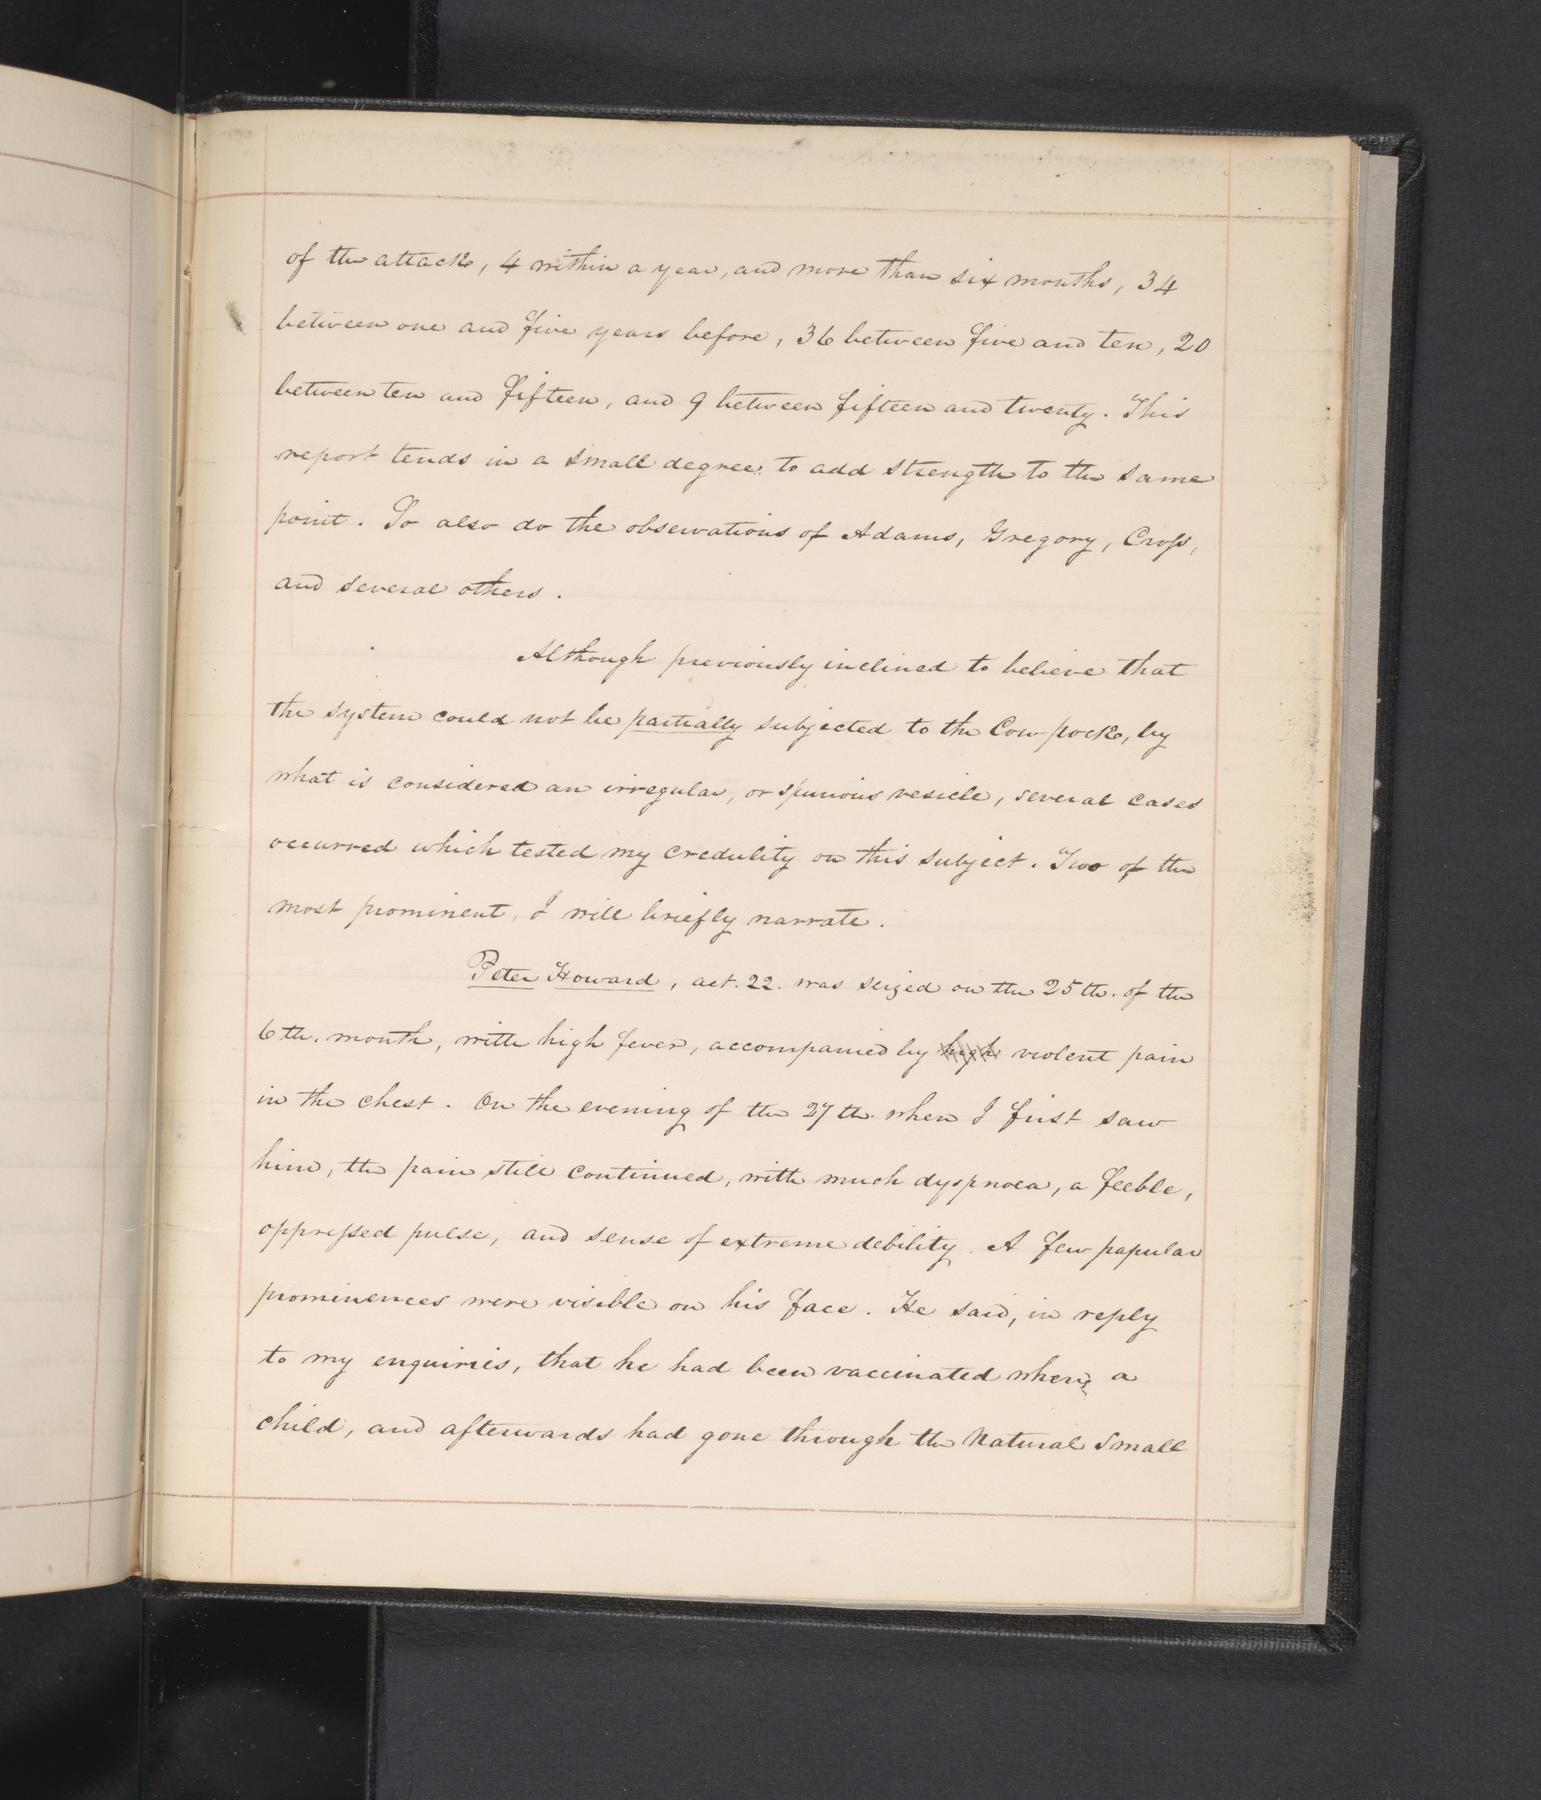 of the attack, 4 within a year, and more than six months, 34
between one and five years before, 36 between five and ten, 20
between ten and fifteen, and 9 between fifteen and twenty. This
report tends in a small degree to add strength to the same
point. So also do the observations of Adams, Gregory, Cross,
and several others.
Although previously inclined to believe that
the system could not be partially subjected to the Cow pock, by
what is considered an irregular, or spurious vesicle, several cases
occurred which tested my credulity on this subject. Two of the
most prominent, I will briefly narrate.
Peter Howard, aet. 22. was seized on the 25th. of the
6th. month, with high fever, accompanied by high violent pain
in the chest. On the evening of the 27th. when I first saw
him, the pain still continued, with much dyspnoea, a feeble,
oppressed pulse, and sense of extreme debility. A few papular
prominences were visible on his face. He said, in reply
to my enquiries, that he had been vaccinated when a
child, and afterwards had gone through the Natural Small